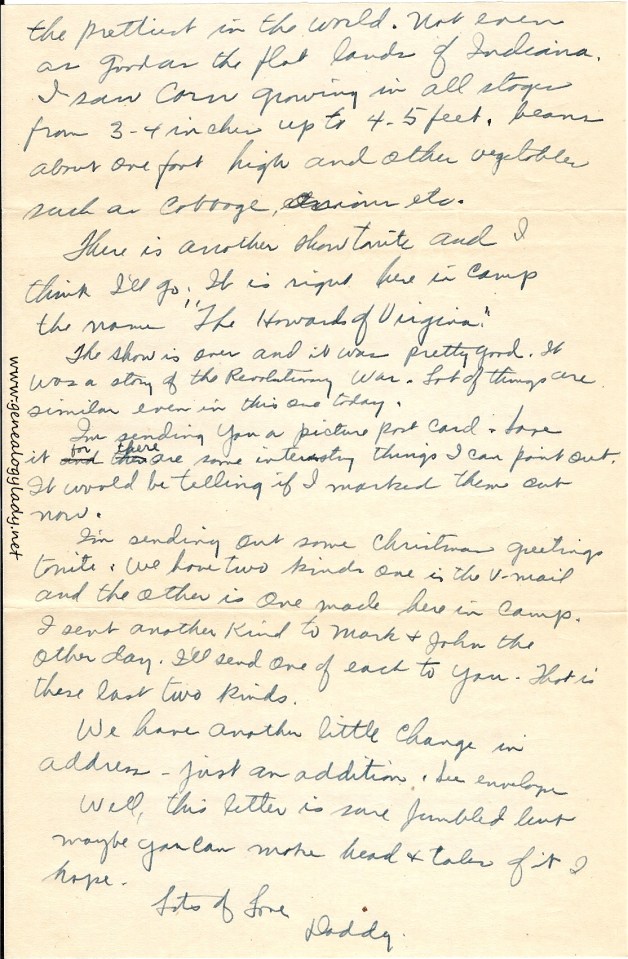 the prettiest in the world. Not even
as good as the flat lands of Indiana.
I saw Corn growing in all stages
from 3-4 inches up to 4-5 feet, beans
about one foot high and other vegetables
such as Cabbage, onions etc.
There is another show tonite and I
think I'll go. It is right here in Camp
the name "The Howards of Virginia."
The show is over and it was pretty good. It
was a story of the Revolutionary War. Lot of things are
similar even in this one today.
I'm sending you a picture post card. Save
for there
it and this are some interesting things I can point out.
It would be telling if I marked them out
now.
I'm sending out some Christmas greetings
tonite. We have two kinds one is the V-mail
and the other is one made here in Camp.
I sent another Kind to Mark & John the
other day. I'll send one of each to you. That is
these last two kinds.
We have another little change in
address - just an addition. See envelope
Well, this letter is sure jumbled but
maybe you can make head & tales of it I
hope.
Lots of Love
Daddy.
www.genealogylady.net